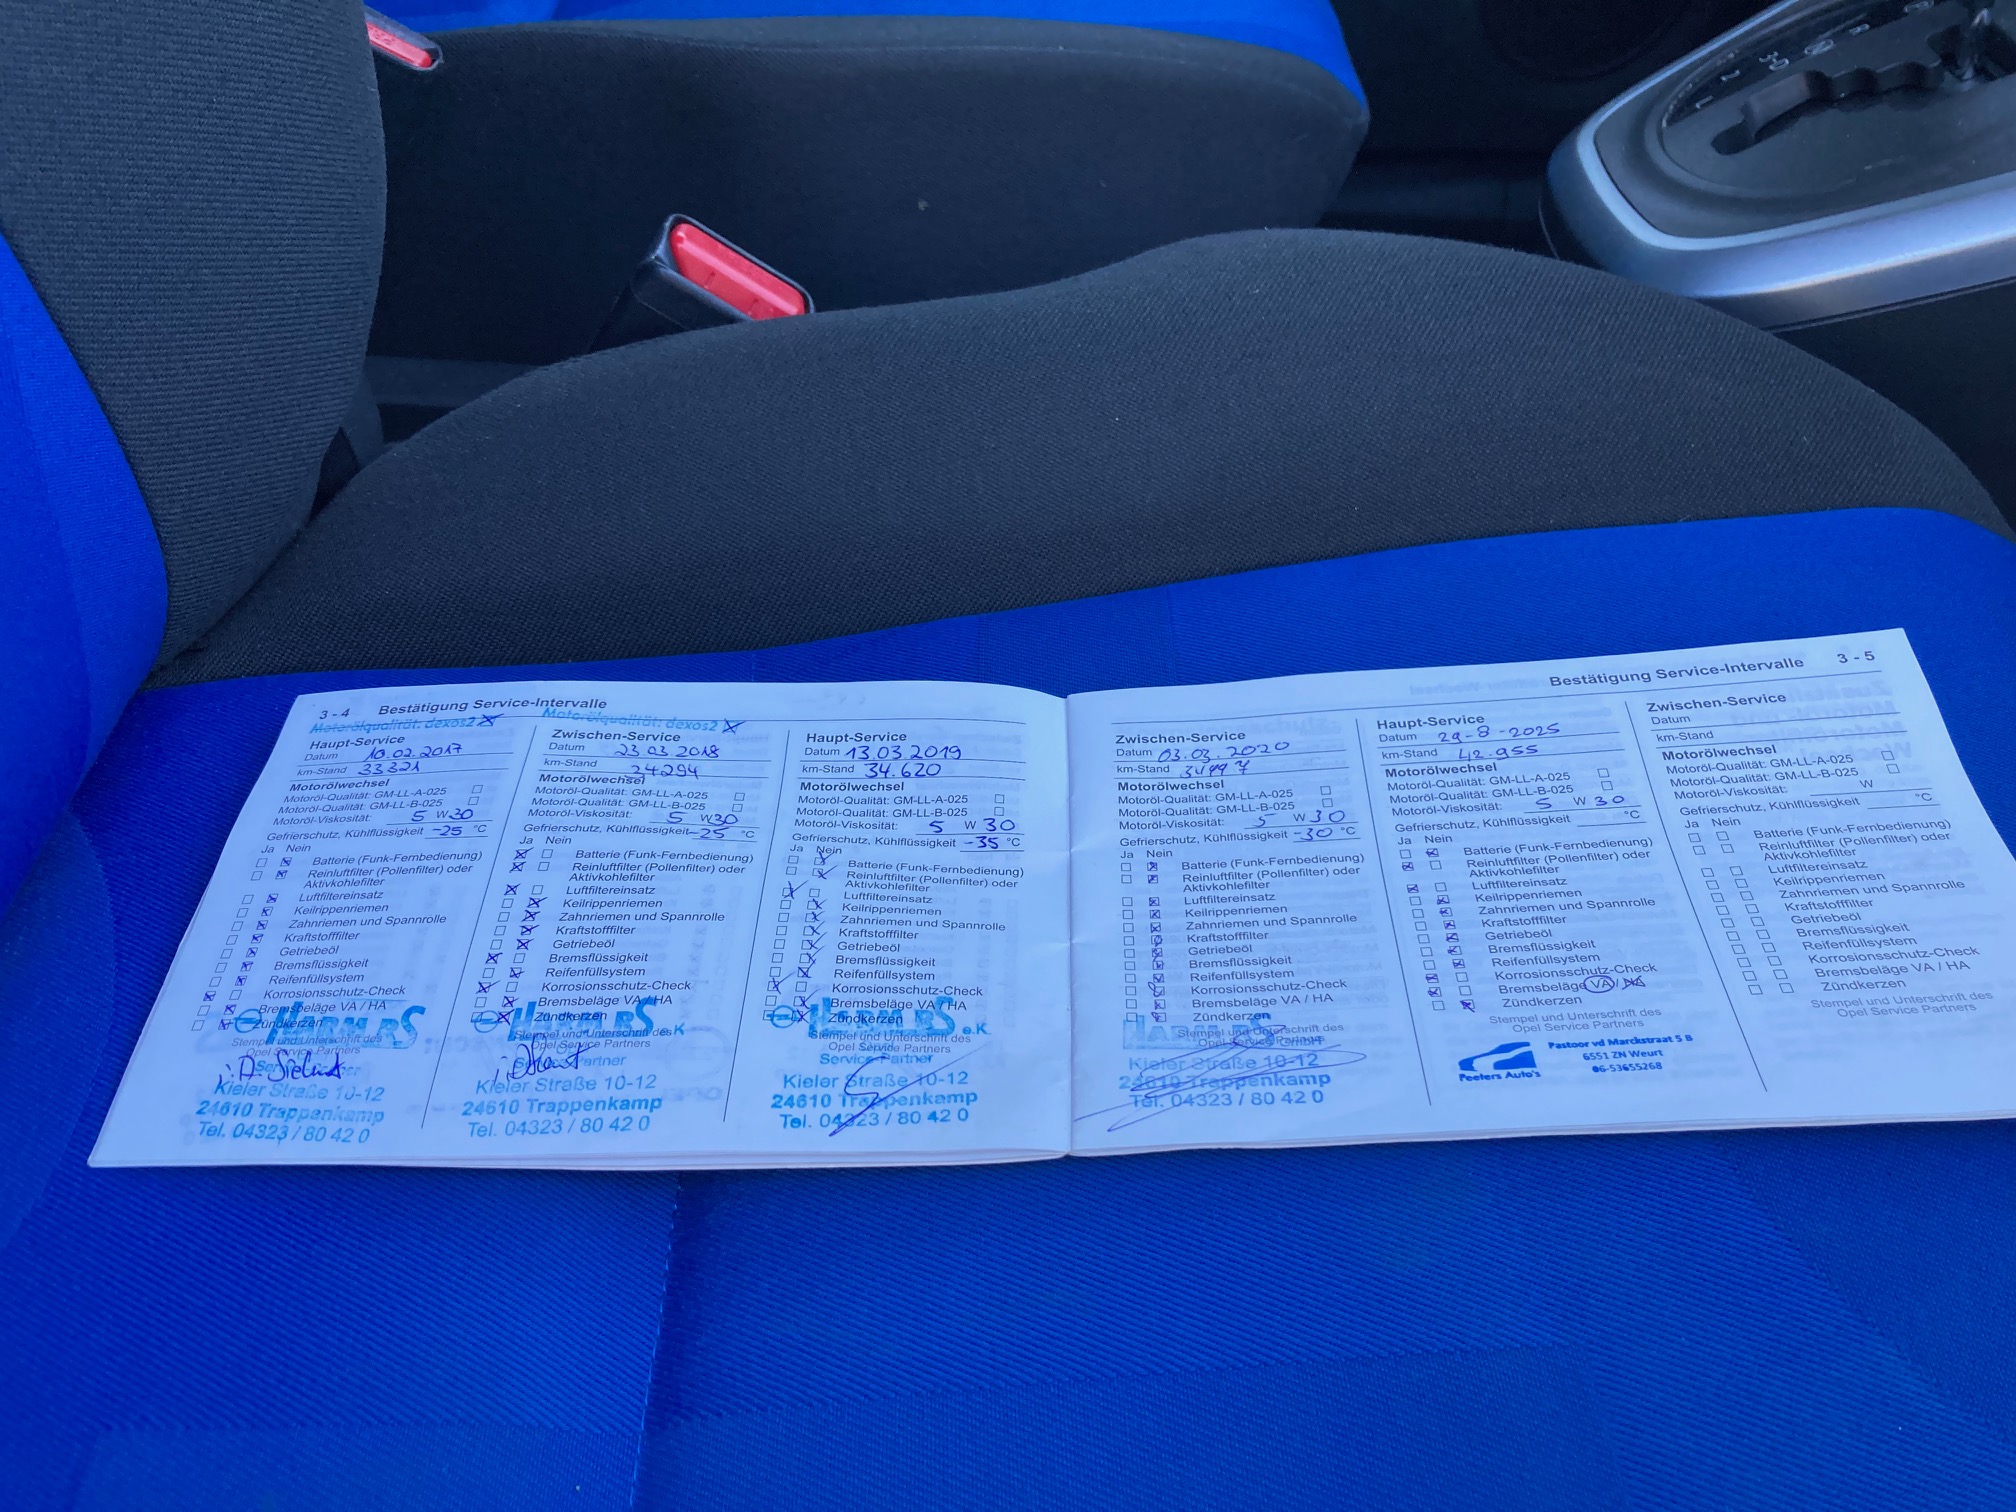 3 - 4 Bestätigung Service-Intervalle
Motorölqualität: dexos2
Haupt-Service
Datum 10.02.2017
km-Stand 33321
Motorölwechsel
Motoröl-Qualität: GM-LL-A-025
Motoröl-Qualität: GM-LL-B-025
Motoröl-Viskosität: 5 W 30
Gefrierschutz, Kühlflüssigkeit -25 °C
Ja Nein
Batterie (Funk-Fernbedienung)
Reinluftfilter (Pollenfilter) oder
Aktivkohlefilter
Luftfiltereinsatz
Keilrippenriemen
Zahnriemen und Spannrolle
Kraftstofffilter
Getriebeöl
Bremsflüssigkeit
Reifenfüllsystem
Korrosionsschutz-Check
Bremsbeläge VA / HA
Zündkerzen
HARM BS
Stempel und Unterschrift des
Opel Service Partners
Kieler Straße 10-12
24610 Trappenkamp
Tel. 04323 / 80 42 0
Motorölqualität: dexos2
Zwischen-Service
Datum 23 03 2018
km-Stand 34294
Motorölwechsel
Motoröl-Qualität: GM-LL-A-025
Motoröl-Qualität: GM-LL-B-025
Motoröl-Viskosität: 5 W 30
Gefrierschutz, Kühlflüssigkeit -25 °C
Ja Nein
Batterie (Funk-Fernbedienung)
Reinluftfilter (Pollenfilter) oder
Aktivkohlefilter
Luftfiltereinsatz
Keilrippenriemen
Zahnriemen und Spannrolle
Kraftstofffilter
Getriebeöl
Bremsflüssigkeit
Reifenfüllsystem
Korrosionsschutz-Check
Bremsbeläge VA / HA
Zündkerzen
HARM BS
Stempel und Unterschrift des
Opel Service Partners
Kieler Straße 10-12
24610 Trappenkamp
Tel. 04323 / 80 42 0
Haupt-Service
Datum 13.03.2019
km-Stand 34.620
Motorölwechsel
Motoröl-Qualität: GM-LL-A-025
Motoröl-Qualität: GM-LL-B-025
Motoröl-Viskosität: 5 W 30
Gefrierschutz, Kühlflüssigkeit -35 °C
Ja Nein
Batterie (Funk-Fernbedienung)
Reinluftfilter (Pollenfilter) oder
Aktivkohlefilter
Luftfiltereinsatz
Keilrippenriemen
Zahnriemen und Spannrolle
Kraftstofffilter
Getriebeöl
Bremsflüssigkeit
Reifenfüllsystem
Korrosionsschutz-Check
Bremsbeläge VA / HA
Zündkerzen
HARM BS e.K
Stempel und Unterschrift des
Opel Service Partners
Service Partner
Kieler Straße 10-12
24610 Trappenkamp
Tel. 04323 / 80 42 0
Bestätigung Service-Intervalle 3 - 5
Zwischen-Service
Datum 03.03.2020
km-Stand
Motorölwechsel
Motoröl-Qualität: GM-LL-A-025
Motoröl-Qualität: GM-LL-B-025
Motoröl-Viskosität: 5 W 30
Gefrierschutz, Kühlflüssigkeit -30 °C
Ja Nein
Batterie (Funk-Fernbedienung)
Reinluftfilter (Pollenfilter) oder
Aktivkohlefilter
Luftfiltereinsatz
Keilrippenriemen
Zahnriemen und Spannrolle
Kraftstofffilter
Getriebeöl
Bremsflüssigkeit
Reifenfüllsystem
Korrosionsschutz-Check
Bremsbeläge VA / HA
Zündkerzen
Stempel und Unterschrift des
Opel Service Partners
Kieler Straße 10-12
24610 Trappenkamp
Tel. 04323 / 80 42 0
Haupt-Service
Datum 29-8-2025
km-Stand 42.955
Motorölwechsel
Motoröl-Qualität: GM-LL-A-025
Motoröl-Qualität: GM-LL-B-025
Motoröl-Viskosität: 5 W 30
Gefrierschutz, Kühlflüssigkeit °C
Ja Nein
Batterie (Funk-Fernbedienung)
Reinluftfilter (Pollenfilter) oder
Aktivkohlefilter
Luftfiltereinsatz
Keilrippenriemen
Zahnriemen und Spannrolle
Kraftstofffilter
Getriebeöl
Bremsflüssigkeit
Reifenfüllsystem
Korrosionsschutz-Check
Bremsbeläge VA / HA
Zündkerzen
Stempel und Unterschrift des
Opel Service Partners
Peeters Auto's
Pastoor vd Marckstraat 5 B
6551 ZN Weurt
06-53655268
Zwischen-Service
Datum
km-Stand
Motorölwechsel
Motoröl-Qualität: GM-LL-A-025
Motoröl-Qualität: GM-LL-B-025
Motoröl-Viskosität: W
Gefrierschutz, Kühlflüssigkeit °C
Ja Nein
Batterie (Funk-Fernbedienung)
Reinluftfilter (Pollenfilter) oder
Aktivkohlefilter
Luftfiltereinsatz
Keilrippenriemen
Zahnriemen und Spannrolle
Kraftstofffilter
Getriebeöl
Bremsflüssigkeit
Reifenfüllsystem
Korrosionsschutz-Check
Bremsbeläge VA / HA
Zündkerzen
Stempel und Unterschrift des
Opel Service Partners
R
N
D
3
2
L